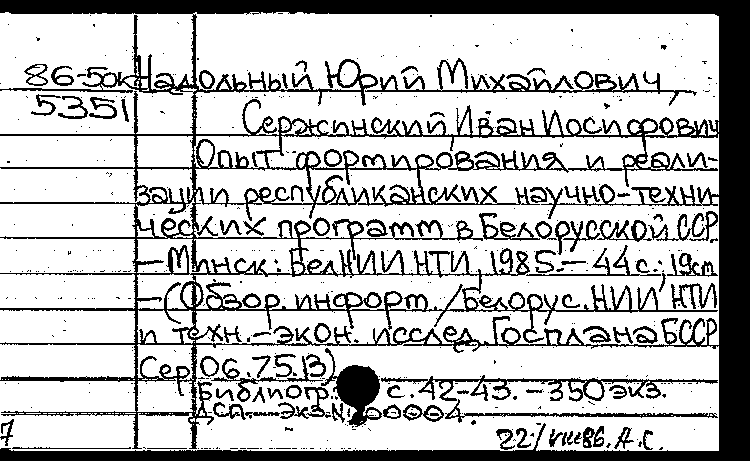 86-50к Надольный, Юрий Михайлович,
5351 Сержинский, Иван Иосифович
Опыт формирования и реали-
зации республиканских научно-техни-
ческих программ в Белорусской ССР.
— Минск: БелНИИНТИ, 1985. — 44 с.; 19 см
— (Обзор. информ. / Белорус. НИИ НТИ
и техн.-экон. исслед. Госплана БССР
Сер 06.75.13)
Библиогр.: с. 42-43. — 350 экз.
ДСП. — Экз. № 00004.
7 22/VIII86. А.С.